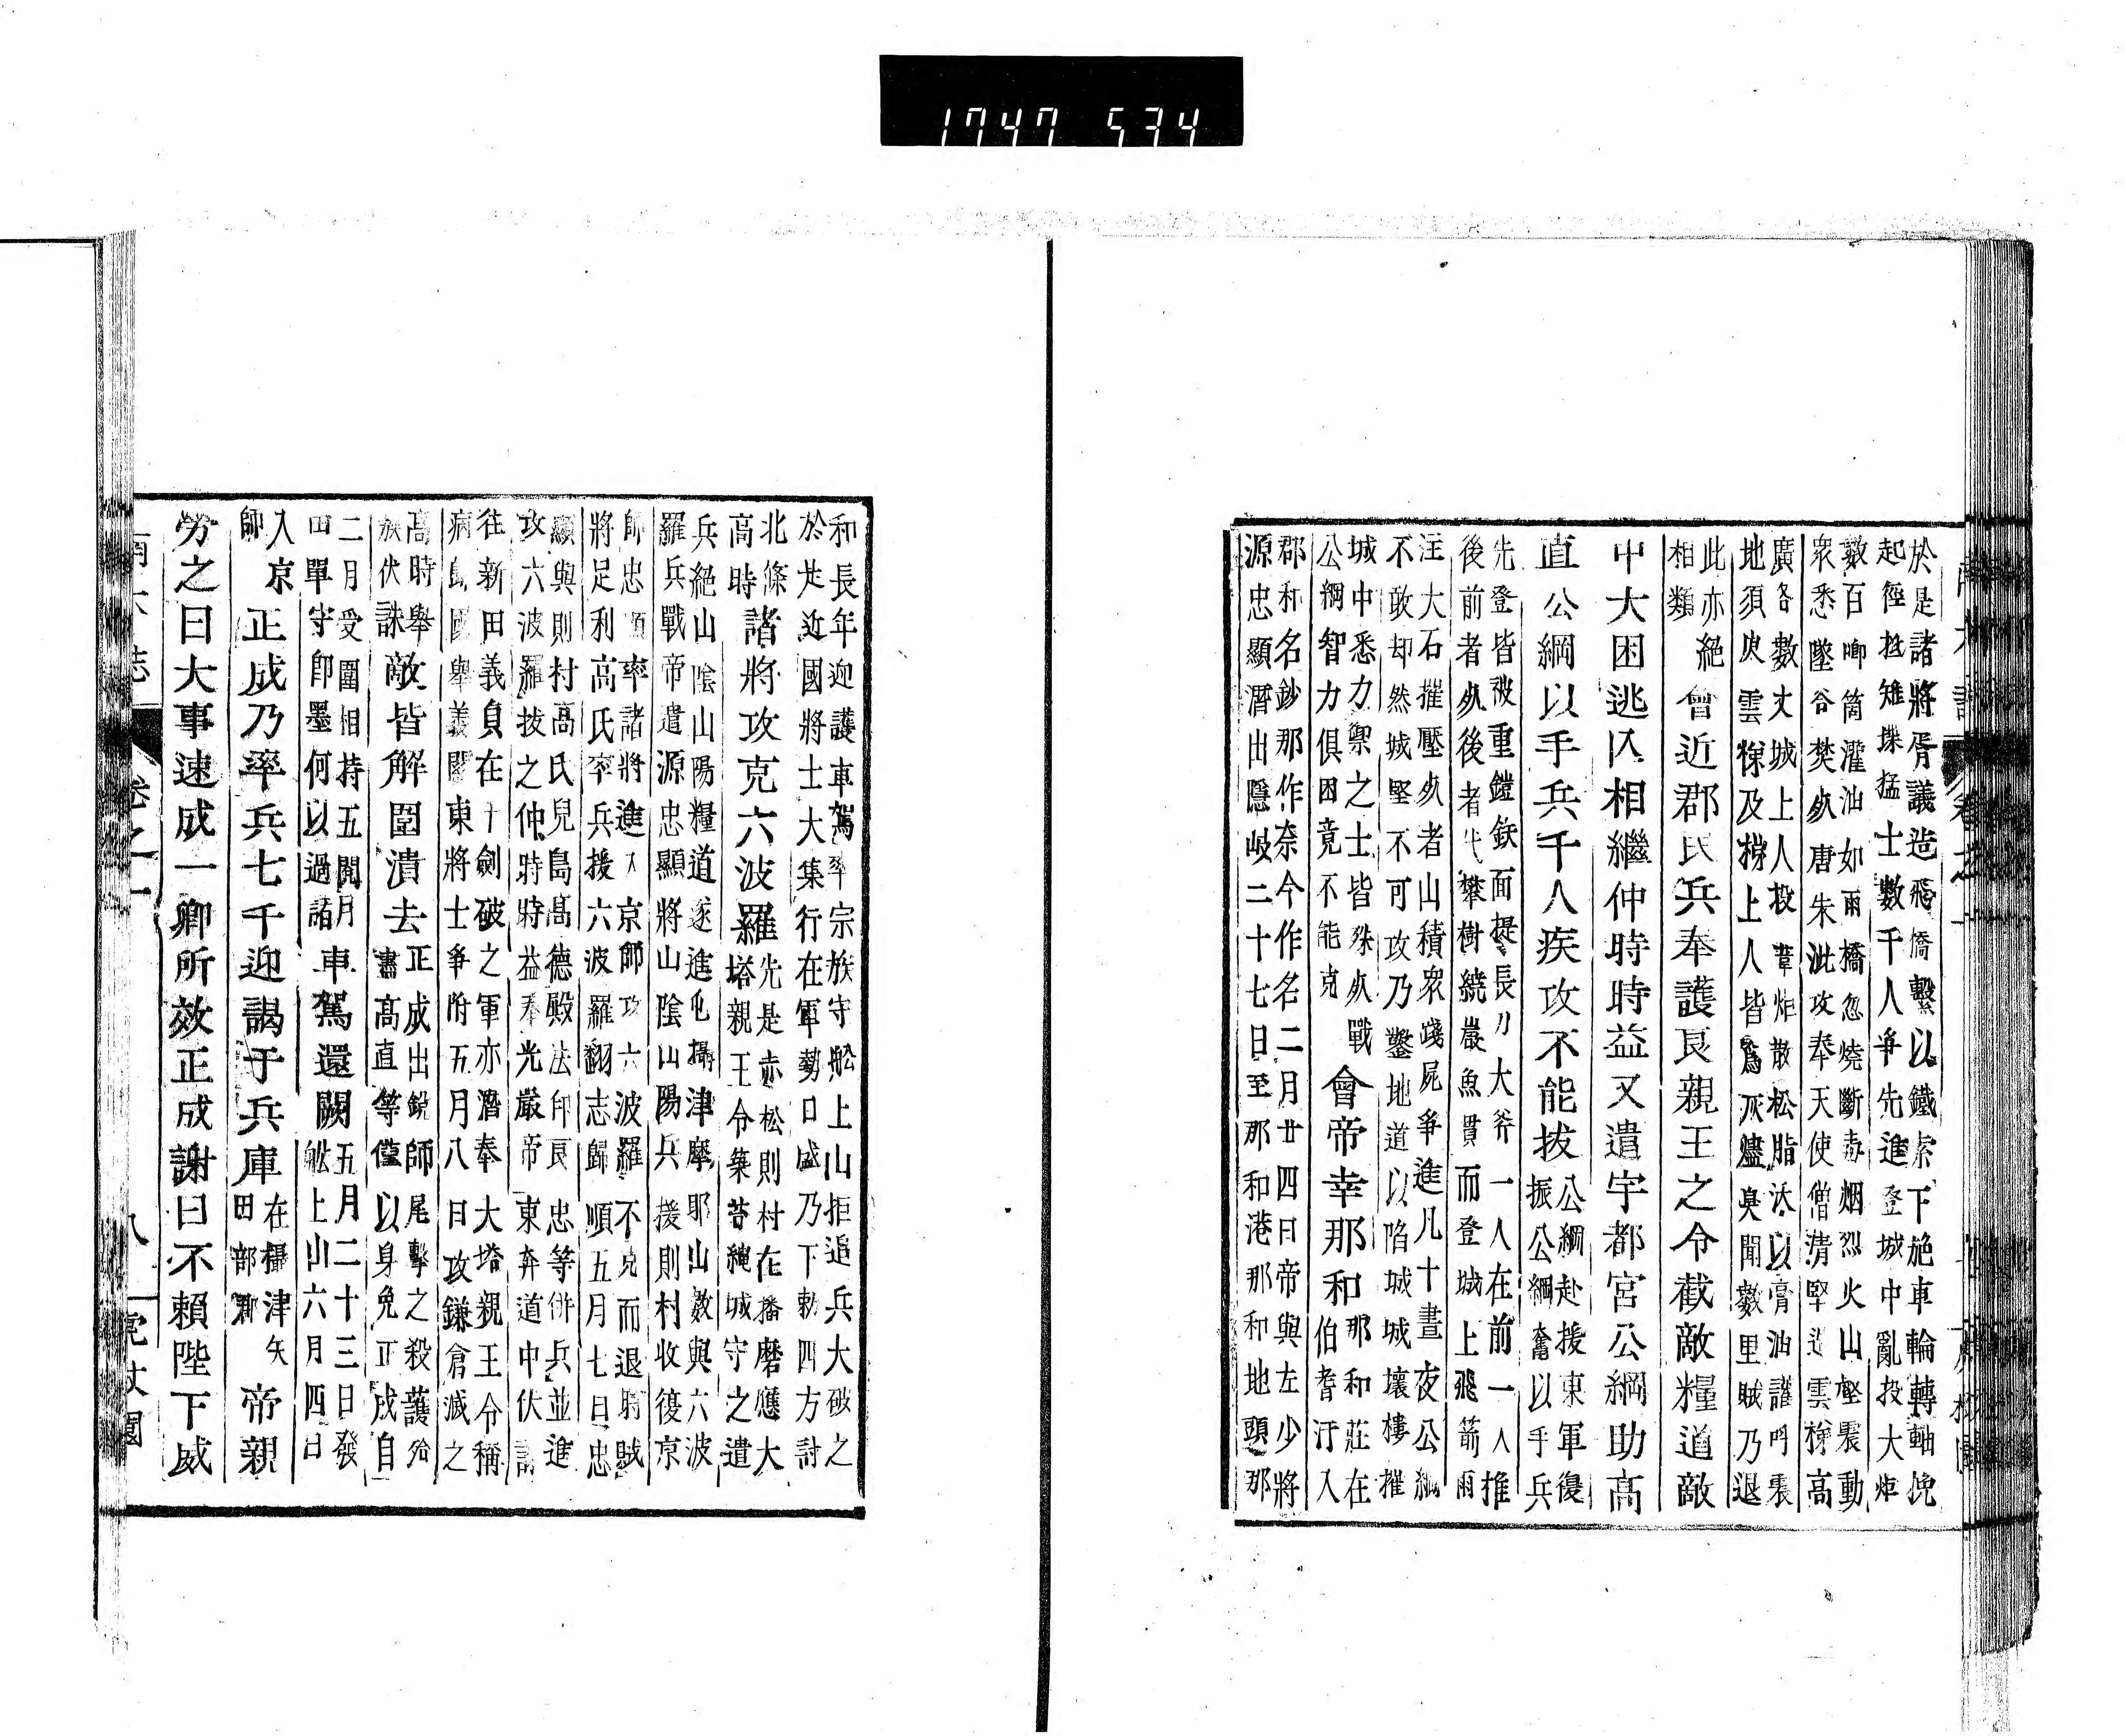 於是諸將胥議造飛橋繫以鐵索下施車輪轉軸挽
起徑抵雉堞猛士數千人爭先進登城中亂投大炬
數百唧筒灌油如雨橋忽燒斷毒烟烈火山壑震動
眾悉墜谷焚死唐朱泚攻奉天使僧清堅造雲梯高
廣各數丈城上人投葦炬散松脂沃以膏油讙呼震
地須臾雲梯及梯上人皆爲灰燼臭聞數里賊乃退
此亦絕
相類
會近郡民兵奉護良親王之令截敵糧道敵
中大困逃亾相繼仲時時益又遣宇都宮公綱助高
直公綱以手兵千人疾攻不能拔
公綱赴援東軍復
振公綱奮以手兵
先登皆被重鎧鈇面提長刀大斧一人在前一人推
後前者死後者代攀樹繞巖魚貫而登城上飛箭雨
注大石摧壓死者山積眾踐屍爭進凡十晝夜公綱
不敢却然城堅不可攻乃鑿地道以陷城城壞樓摧
城中悉力禦之士皆殊死戰
公綱智力俱困竟不能克
會帝幸那和
那和莊在
伯耆汗入
郡和名鈔那作奈今作名二月廿四日帝與左少將
源忠顯潛出隱岐二十七日至那和港那和地頭那
和長年迎護車駕率宗族守舩上山拒追兵大破之
於是近國將士大集行在軍勢日盛乃下勅四方討
北條
高時
諸將攻克六波羅
先是赤松則村在播磨應大
塔親王令築苔繩城守之遣
兵絕山陰山陽糧道遂進屯攝津摩耶山數與六波
羅兵戰帝遣源忠顯將山陰山陽兵援則村收復京
師忠顯率諸將進入京師攻六波羅不克而退時賊
將足利高氏率兵援六波羅翻志歸順五月七日忠
顯與則村高氏兒島高德殿法印良忠等併兵並進
攻六波羅拔之仲時時益奉光嚴帝東奔道中伏誅
往新田義貞在千劍破之軍亦潛奉大塔親王令稱
病歸國舉義關東將士爭附五月八日攻鎌倉滅之
高時舉
族伏誅
敵皆解圍潰去
正成出銳師尾擊之殺護殆
盡高直等僅以身免正成自
二月受圍相持五閱月
田單守卽墨何以過諸
車駕還闕
五月二十三日發
舩上山六月四日
入京
師
正成乃率兵七千迎謁于兵庫
在攝津矢
田部郡
帝親
勞之曰大事速成一卿所效正成謝曰不賴陛下威
南木誌 卷之一 八 虎杖園